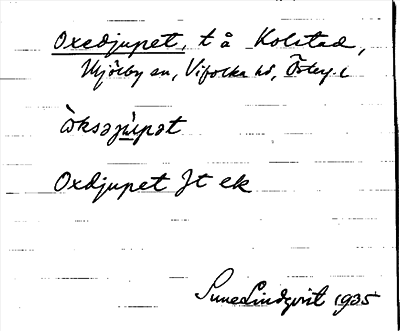 Oxedjupet, t å Kolstad,
Mjölby sn, Vifolka hd, Österg. l
òksəjùpət
Oxdjupet Jt ek
Sune Lindqvist 1935